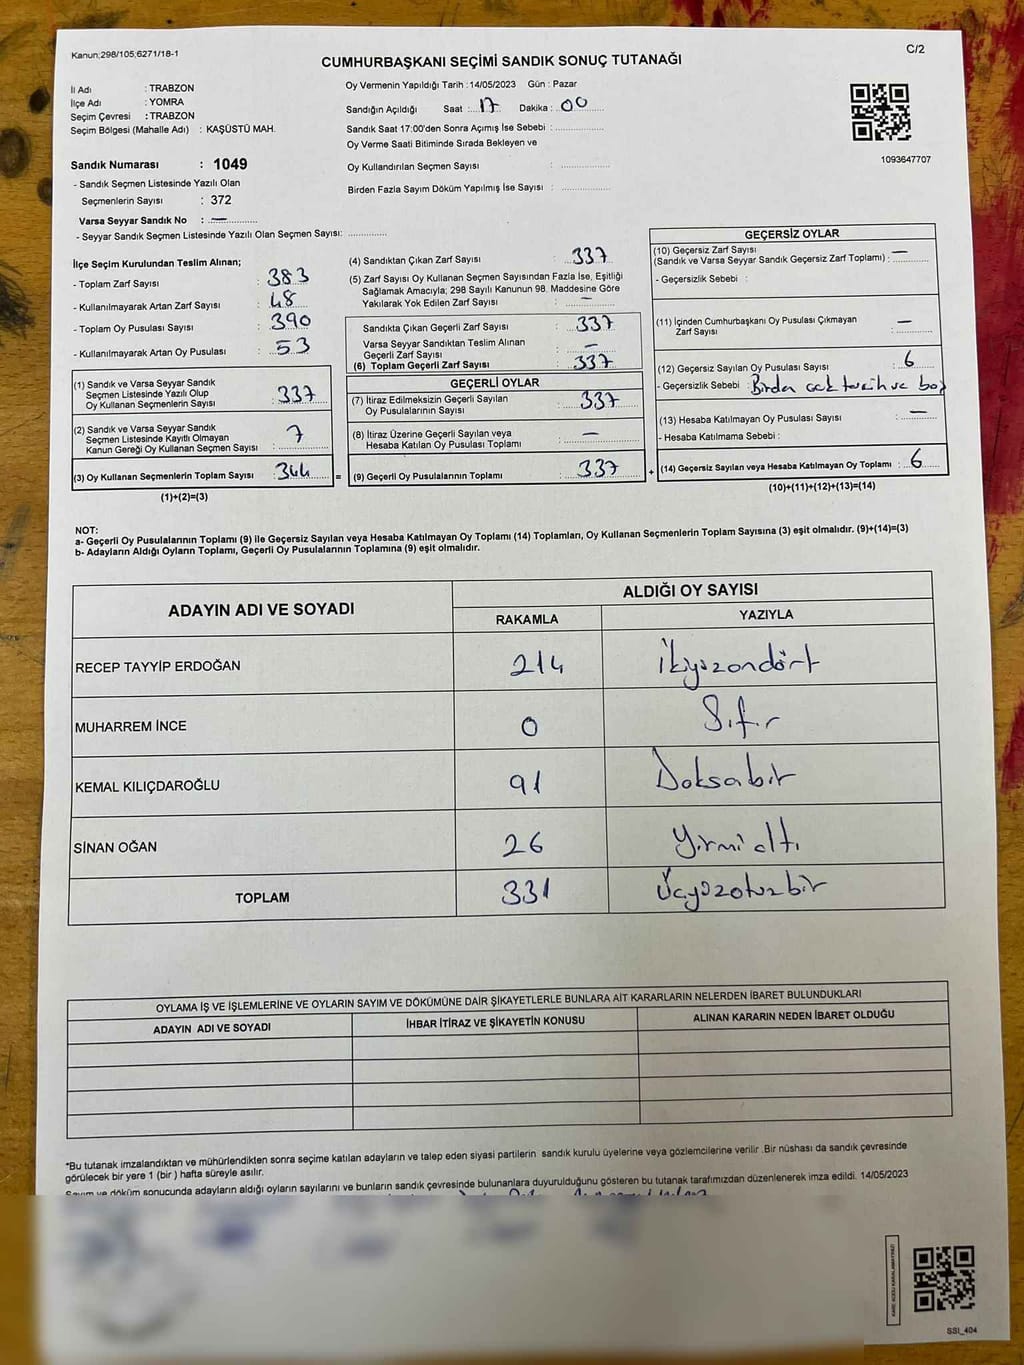 Kanun;298/105;6271/18-1
C/2
CUMHURBAŞKANI SEÇİMİ SANDIK SONUÇ TUTANAĞI
İl Adı : TRABZON
İlçe Adı : YOMRA
Seçim Çevresi : TRABZON
Seçim Bölgesi (Mahalle Adı) : KAŞÜSTÜ MAH.
Sandık Numarası : 1049
- Sandık Seçmen Listesinde Yazılı Olan
Seçmenlerin Sayısı : 372
Varsa Seyyar Sandık No : —
- Seyyar Sandık Seçmen Listesinde Yazılı Olan Seçmen Sayısı:
Oy Vermenin Yapıldığı Tarih :14/05/2023 Gün : Pazar
Sandığın Açıldığı Saat : 17 Dakika : 00
Sandık Saat 17:00'den Sonra Açımış İse Sebebi :
Oy Verme Saati Bitiminde Sırada Bekleyen ve
Oy Kullandırılan Seçmen Sayısı :
Birden Fazla Sayım Döküm Yapılmış İse Sayısı :
1093647707
İlçe Seçim Kurulundan Teslim Alınan;
- Toplam Zarf Sayısı : 383
- Kullanılmayarak Artan Zarf Sayısı : 48
- Toplam Oy Pusulası Sayısı : 390
- Kullanılmayarak Artan Oy Pusulası : 53
(1) Sandık ve Varsa Seyyar Sandık
Seçmen Listesinde Yazılı Olup
Oy Kullanan Seçmenlerin Sayısı : 337
(2) Sandık ve Varsa Seyyar Sandık
Seçmen Listesinde Kayıtlı Olmayan
Kanun Gereği Oy Kullanan Seçmen Sayısı : 7
(3) Oy Kullanan Seçmenlerin Toplam Sayısı : 344 =
(1)+(2)=(3)
(4) Sandıktan Çıkan Zarf Sayısı : 337
(5) Zarf Sayısı Oy Kullanan Seçmen Sayısından Fazla İse, Eşitliği
Sağlamak Amacıyla; 298 Sayılı Kanunun 98. Maddesine Göre
Yakılarak Yok Edilen Zarf Sayısı : —
Sandıkta Çıkan Geçerli Zarf Sayısı : 337
Varsa Seyyar Sandıktan Teslim Alınan
Geçerli Zarf Sayısı : —
(6) Toplam Geçerli Zarf Sayısı : 337
GEÇERLİ OYLAR
(7) İtiraz Edilmeksizin Geçerli Sayılan
Oy Pusulalarının Sayısı : 337
(8) İtiraz Üzerine Geçerli Sayılan veya
Hesaba Katılan Oy Pusulası Toplamı : —
(9) Geçerli Oy Pusulalarının Toplamı : 337 +
GEÇERSİZ OYLAR
(10) Geçersiz Zarf Sayısı
(Sandık ve Varsa Seyyar Sandık Geçersiz Zarf Toplamı) : —
- Geçersizlik Sebebi :
(11) İçinden Cumhurbaşkanı Oy Pusulası Çıkmayan
Zarf Sayısı : —
(12) Geçersiz Sayılan Oy Pusulası Sayısı : 6
- Geçersizlik Sebebi : Birden çok tercih ve boş
(13) Hesaba Katılmayan Oy Pusulası Sayısı : —
- Hesaba Katılmama Sebebi :
(14) Geçersiz Sayılan veya Hesaba Katılmayan Oy Toplamı : 6
(10)+(11)+(12)+(13)=(14)
NOT:
a- Geçerli Oy Pusulalarının Toplamı (9) ile Geçersiz Sayılan veya Hesaba Katılmayan Oy Toplamı (14) Toplamları, Oy Kullanan Seçmenlerin Toplam Sayısına (3) eşit olmalıdır. (9)+(14)=(3)
b- Adayların Aldığı Oyların Toplamı, Geçerli Oy Pusulalarının Toplamına (9) eşit olmalıdır.
ADAYIN ADI VE SOYADI ALDIĞI OY SAYISI
RAKAMLA YAZIYLA
RECEP TAYYİP ERDOĞAN 214 İkiyüzondört
MUHARREM İNCE 0 Sıfır
KEMAL KILIÇDAROĞLU 91 Doksabir
SİNAN OĞAN 26 Yirmi altı
TOPLAM 331 Üçyüzotuzbir
OYLAMA İŞ VE İŞLEMLERİNE VE OYLARIN SAYIM VE DÖKÜMÜNE DAİR ŞİKAYETLERLE BUNLARA AİT KARARLARIN NELERDEN İBARET BULUNDUKLARI
ADAYIN ADI VE SOYADI İHBAR İTİRAZ VE ŞİKAYETİN KONUSU ALINAN KARARIN NEDEN İBARET OLDUĞU
*Bu tutanak imzalandıktan ve mühürlendikten sonra seçime katılan adayların ve talep eden siyasi partilerin sandık kurulu üyelerine veya gözlemcilerine verilir .Bir nüshası da sandık çevresinde
görülecek bir yere 1 (bir ) hafta süreyle asılır.
Sayım ve döküm sonucunda adayların aldığı oyların sayılarını ve bunların sandık çevresinde bulunanlara duyurulduğunu gösteren bu tutanak tarafımızdan düzenlenerek imza edildi. 14/05/2023
SSI_404